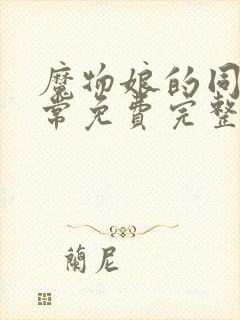 魔物娘的同
常免費完整
蘭尼